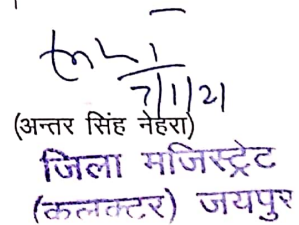 7/1/21
(अन्तर सिंह नेहरा)
जिला मजिस्ट्रेट
(कलक्टर) जयपुर